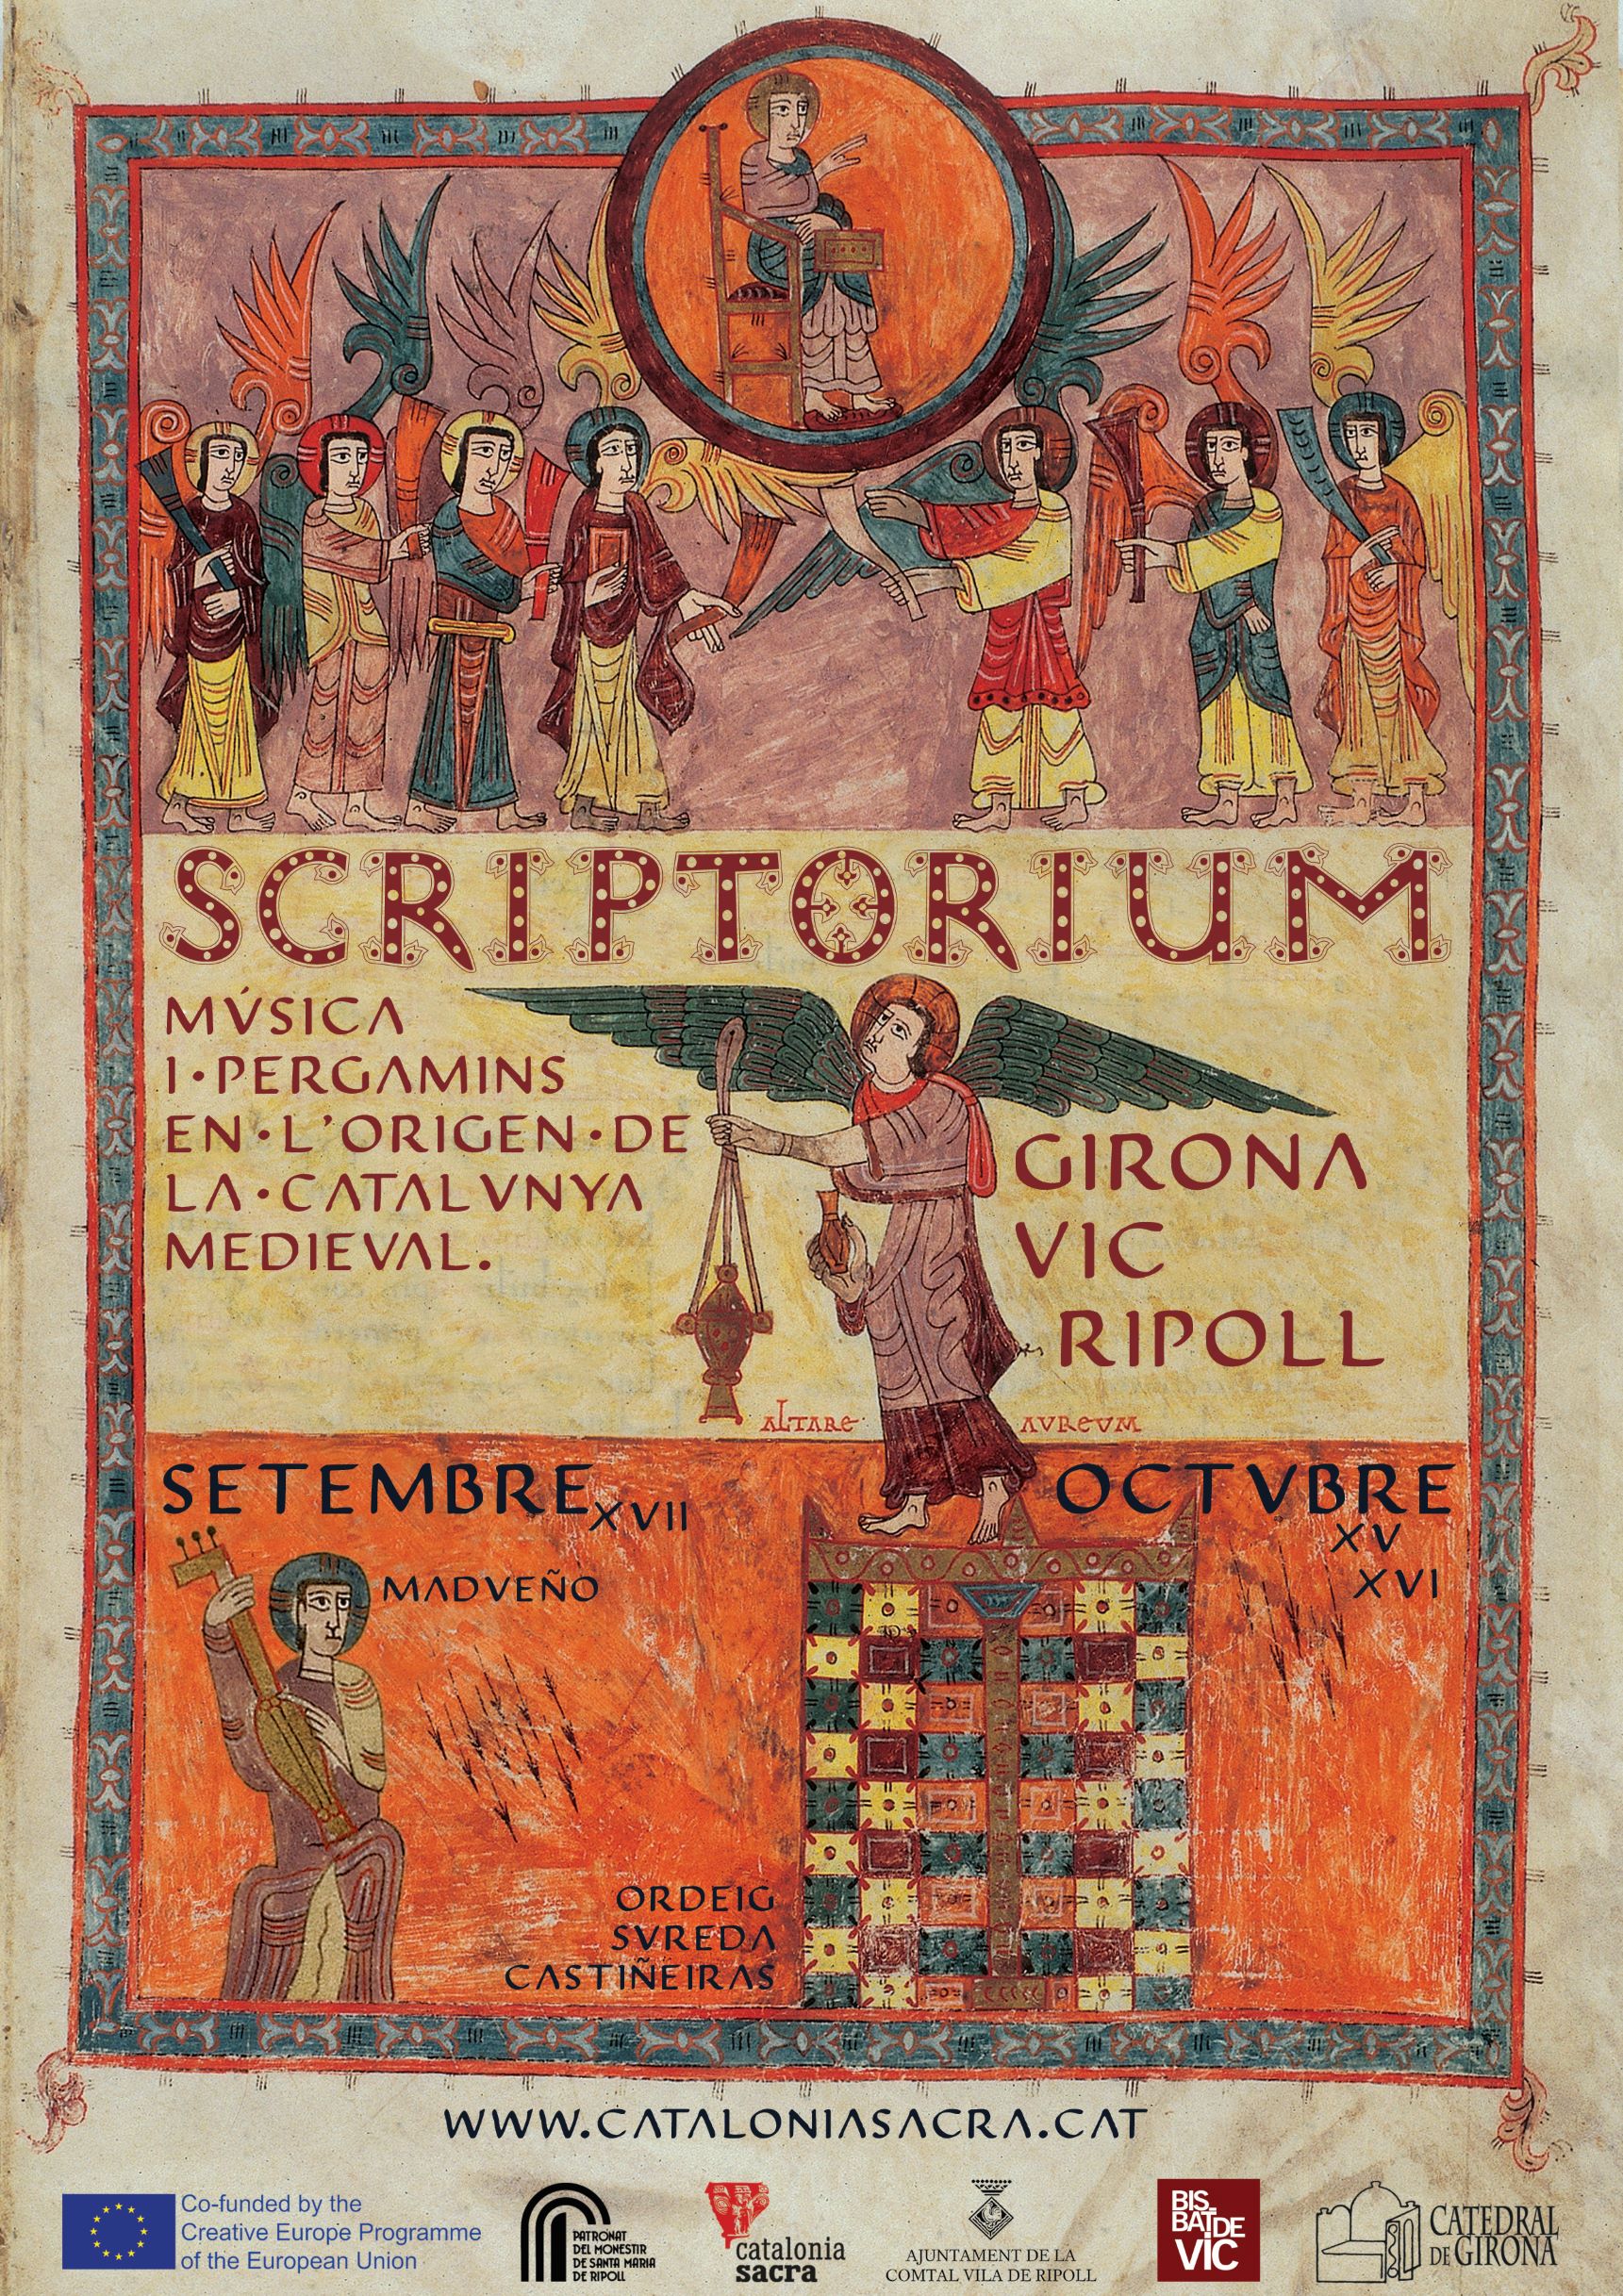 SCRIPTORIUM
MÚSICA
I·PERGAMINS
EN·L'ORIGEN·DE
LA·CATALVNYA
MEDIEVAL.
GIRONA
VIC
RIPOLL
ALTARE AVREVM
SETEMBRE XVII
OCTVBRE
XV
XVI
MADVEÑO
ORDEIG
SVREDA
CASTIÑEIRAS
WWW.CATALONIASACRA.CAT
Co-funded by the
Creative Europe Programme
of the European Union
PATRONAT
DEL MONESTIR
DE SANTA MARIA
DE RIPOLL
catalonia
sacra
AJUNTAMENT DE LA
COMTAL VILA DE RIPOLL
BIS-
BAT DE
VIC
CATEDRAL
DE GIRONA